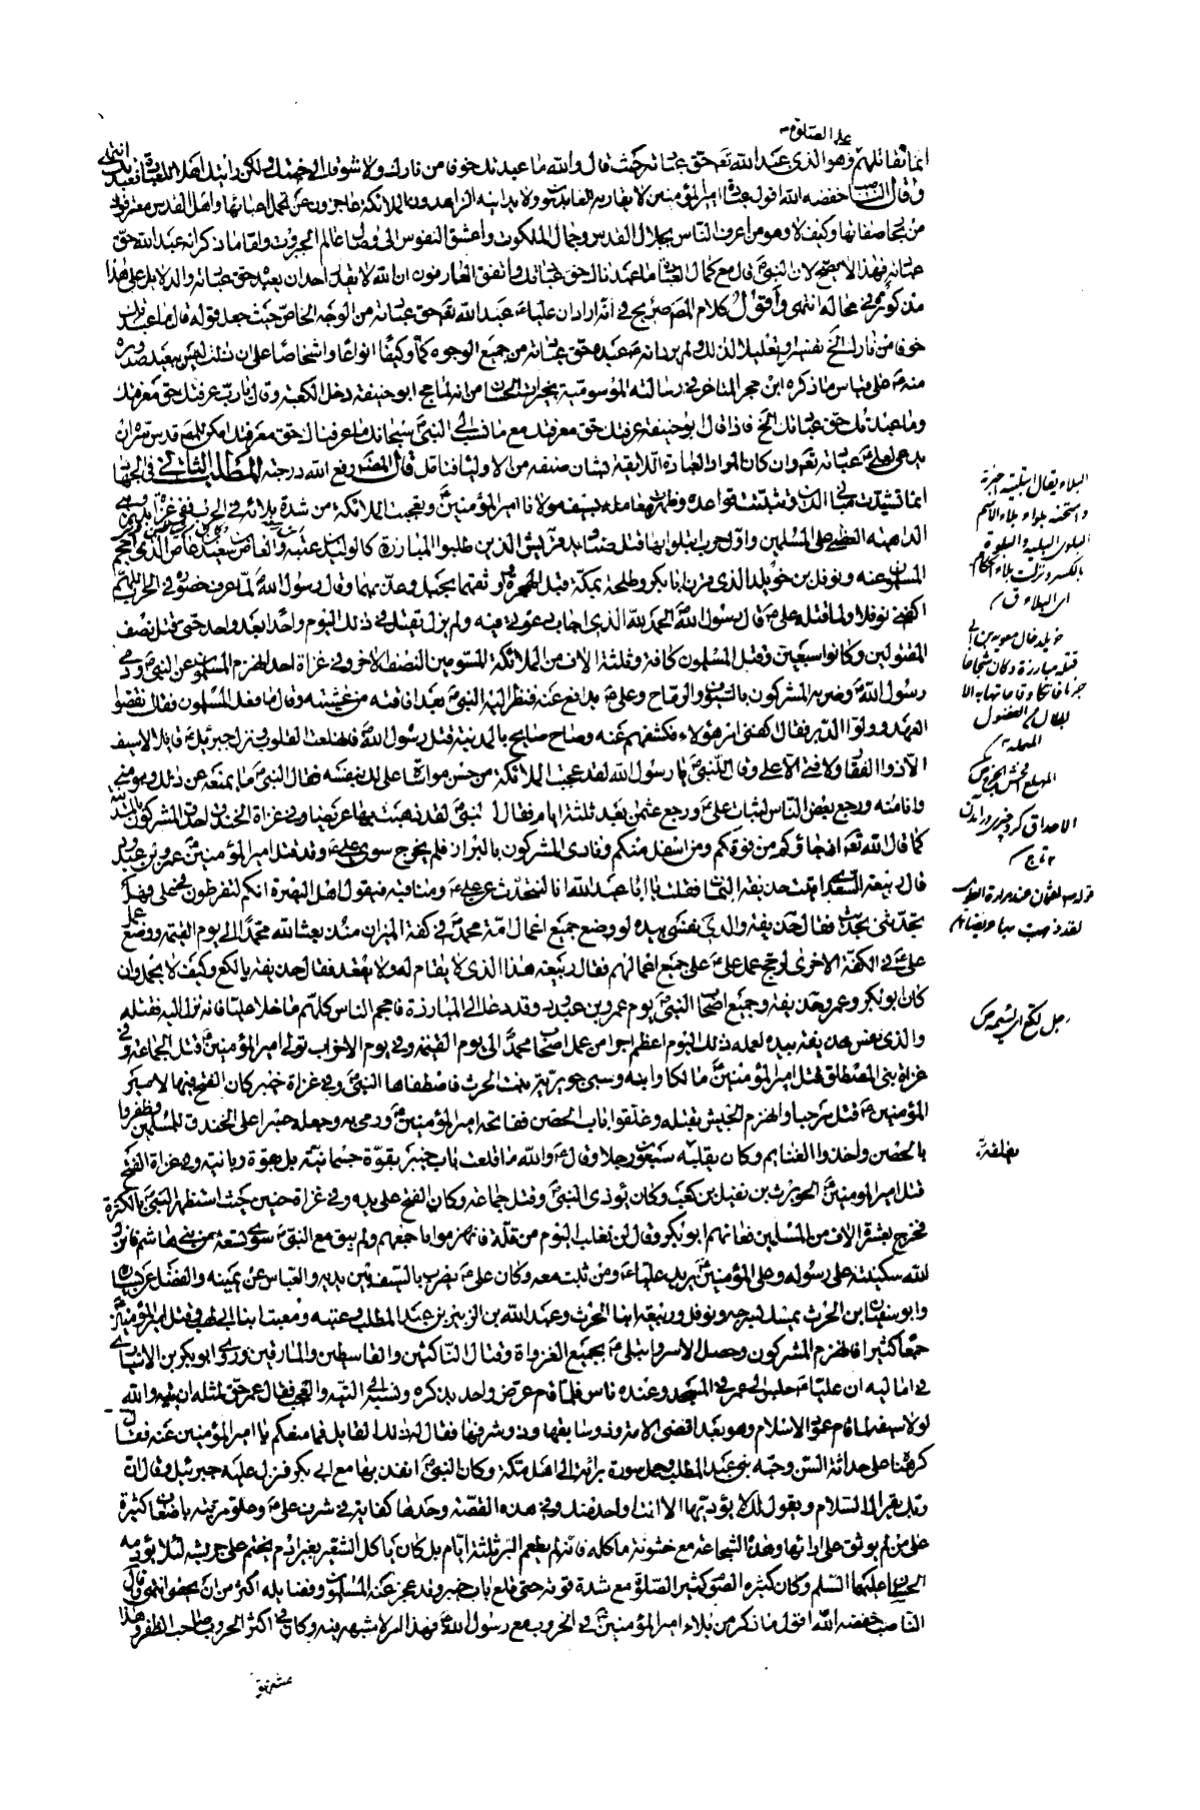 عليه الصلوة
انما تقاتلهم وهو الذي عبد الله تعالى حق عبادته حيث قال والله ما عبدتك خوفا من نارك ولا شوقا الى جنتك ولكن رأيتك اهلا للعبادة فعبدتك انتهى
وقال الناصب خفضه الله اقول عبادة امير المؤمنين لا يقاربه العابدون ولا يدانيه الزاهدون والملائكة عاجزون عن تحمل اعبائها واهل القدس معترفون
من بحا صفائها وكيف لا وهو من اعرف الناس بجلال القدس وجمال الملكوت واعشق النفوس الى وصال عالم الجبروت ولقا ما ذكر انه عبد الله حق
عبادته فهذا لا يصح لان النبي قال مع كمال العبادة ما عبدناك حق عبادتك واتفق العارفون ان الله لا يقدر احد ان يعبده حق عبادته والدلائل على هذا
مذكورة في محاله انتهى واقول كلام المص صريح في انه اراد ان عليا عبد الله تعالى حق عبادته من الوجه الخاص حيث جعل قوله قال ما عبدتك
خوفا من نارك الخ تفسيرا وتعليلا لذلك ولم يرد انه عبده حق عبادته من جميع الوجوه كما وكيفا انواعا واشخاصا على ان ذلك ليس ببعيد صدوره
منه على قياس ما ذكره ابن حجر المتاخر في رسالته الموسومة بخيرات الحسان من انه لما حج ابو حنيفة دخل الكعبة وقال يا رب عرفتك حق معرفتك
وما عبدتك حق عبادتك الخ فاذا قال ابو حنيفة عرفتك حق معرفتك مع ما نسب الى النبي سبحانك ما عرفناك حق معرفتك امكن للمص قدس سره ان
يدعي لعلي عبادته تعالى وان كان المراد العبادة اللايقة بشان صنفه من الاوليا فتامل قال المص رفع الله درجته المطلب الثاني في الجهاد
انما تشيدت مباني الدين وتثبتت قواعده وظهرت معالمه بسيف مولانا امير المؤمنين وتعجبت الملائكة من شدة بلائه في الحرب ففي غزاة بدر وهي
الداهية العظمى على المسلمين واول حرب ابتلوا بها قتل صناديد قريش الذين طلبوا المبارزة كالوليد بن عتبة والعاص بن سعيد بن العاص الذي احجم
المسلمون عنه ونوفل بن خويلد الذي قرن ابا بكر وطلحة بمكة قبل الهجرة واوثقهما بحبل وعذبهما وقال رسول الله لما عرف حضوره في الحرب اللهم
اكفني نوفلا ولما قتله علي قال رسول الله الحمد لله الذي اجاب دعوتي فيه ولم يزل يقتل في ذلك اليوم واحدا بعد واحد حتى قتل نصف
المقتولين وكانوا سبعين وقتل المسلمون كافة وثلثة الاف من الملائكة المسومين النصف الاخر وفي غزاة احد انهزم المسلمون عن النبي ورمي
رسول الله وضربه المشركون بالسيوف والرماح وعلي يدافع عنه فنظر اليه النبي بعد افاقته من غشيته وقال ما فعل المسلمون فقال نقضوا
العهد وولوا الدبر فقال اكفني امر هؤلاء فكشفهم عنه وصاح صايح بالمدينة قتل رسول الله فانخلعت القلوب ونزل جبرئيل قايلا لا سيف
الا ذو الفقار ولا فتى الا علي وقال للنبي يا رسول الله لقد عجبت الملائكة من حسن مواساة علي لك بنفسه فقال النبي ما يمنعه من ذلك وهو مني
وانا منه ورجع بعض الناس لثبات علي ورجع عثمن بعد ثلثة ايام فقال له النبي لقد ذهبت بها عريضا وفي غزاة الخندق احدق المشركون بالمدينة
كما قال الله تعالى اذ جاؤكم من فوقكم ومن اسفل منكم ونادى المشركون بالبراز فلم يخرج سوى علي وقد قتل امير المؤمنين عمرو بن عبد ود
قال ربيعة السعدي اتيت حذيفة بن اليمان فقلت يا ابا عبد الله انا لنتحدث عن علي ومناقبه فيقول اهل البصرة انكم لتفرطون في علي فهل
تحدثني بحديث فقال حذيفة والذي نفسي بيده لو وضع جميع اعمال امة محمد في كفة الميزان منذ بعث الله محمدا الى يوم القيمة ووضع عمل
علي في الكفة الاخرى لرجح عمل علي على جميع اعمالهم فقال ربيعة هذا الذي لا يقام له ولا يقعد فقال حذيفة يا لكع وكيف لا يحمل واين
كان ابو بكر وعمر وحذيفة وجميع اصحاب النبي يوم عمرو بن عبد ود وقد دعا الى المبارزة فاحجم الناس كلهم ما خلا عليا فانه نزل اليه فقتله
والذي نفس حذيفة بيده لعمله ذلك اليوم اعظم اجرا من عمل اصحاب محمد الى يوم القيمة وفي يوم الاحزاب تولى امير المؤمنين قتل الجماعة وفي
غزاة بني المصطلق قتل امير المؤمنين مالكا وابنه وسبى جويرية بنت الحرث فاصطفاها النبي وفي غزاة خيبر كان الفتح فيها لامير
المؤمنين قتل مرحبا وانهزم الجيش بقتله وغلقوا باب الحصن ففتحه امير المؤمنين ورمى به وجعله جسرا على الخندق للمسلمين وظفروا
بالحصن واخذوا الغنايم وكان يقلبه سبعون رجلا وقال والله ما قلعت باب خيبر بقوة جسمانية بل بقوة ربانية وفي غزاة الفتح
قتل امير المؤمنين الحويرث بن نفيل بن كعب وكان يؤذي النبي وقتل جماعة وكان الفتح على يده وفي غزاة حنين حيث استظهر النبي بالكثرة
فخرج بعشرة الاف من المسلمين فعانهم ابو بكر وقال لن نغلب اليوم من قلة فانهزموا باجمعهم ولم يبق مع النبي سوى تسعة من بني هاشم فانزل
الله سكينته على رسوله وعلى المؤمنين يريد عليا ومن ثبت معه وكان علي يضرب بالسيف بين يديه والعباس عن يمينه والفضل عن يساره
وابو سفيان ابن الحرث يمسك لسرجه ونوفل وربيعة ابنا الحرث وعبد الله بن الزبير بن عبد المطلب وعتبة ومعتب ابنا ابي لهب وقتل امير المؤمنين
جمعا كثيرا فانهزم المشركون وحصل الاسر وابتلي بجميع الغزوات وقتال الناكثين والقاسطين والمارقين وروى ابو بكر بن الانباري
في اماليه ان عليا جلس الى عمر في المسجد وعنده ناس فلما قام عرض واحد بذكره ونسبه الى التيه والعجب فقال عمر حق لمثله ان يتيه والله
لولا سيفه لما قام عمود الاسلام وهو بعد اقضى الامة وذو سابقتها وذو شرفها فقال له ذلك القايل فما منعكم يا امير المؤمنين عنه فقال
كرهناه على حداثة السن وحبه بني عبد المطلب وحمله سورة برائة الى اهل مكة وكان النبي انفذ بها مع ابي بكر فنزل عليه جبرئيل وقال ان
ربك يقرئك السلام ويقول لك لا يؤديها الا انت او واحد منك وفي هذه القصة وحدها كفاية في شرف علي وعلو مرتبته باضعاف كثيرة
على من لم يوثق على ادائها وهذه الشجاعة مع خشونة ماكله فانه لم يطعم البر ثلثة ايام بل كان ياكل الشعير بغير ادم يختم على جريشه لئلا يؤدمه
الحسنان عليهما السلم وكان كثير الصوم كثير الصلوة مع شدة قوته حتى قلع باب خيبر وقد عجز عنه المسلمون وفضايله اكثر من ان يحصى انتهى وقال
الناصب خفضه الله اقول ما ذكر من بلاء امير المؤمنين في الحروب مع رسول الله فهذا امر لا شبهة فيه وكان في اكثر الحروب صاحب الظفر وهذا
البلاء يقال ابتليته اختبرته
وامتحنه بلواء بلاء الاسم
البلوى البلية والبلوة
بالكسر ونزلت بلاء كقطام
اى البلاء ق
الاحداق كرد چيزى درآمدن
تاج
رجل لكع اى لئيم ص